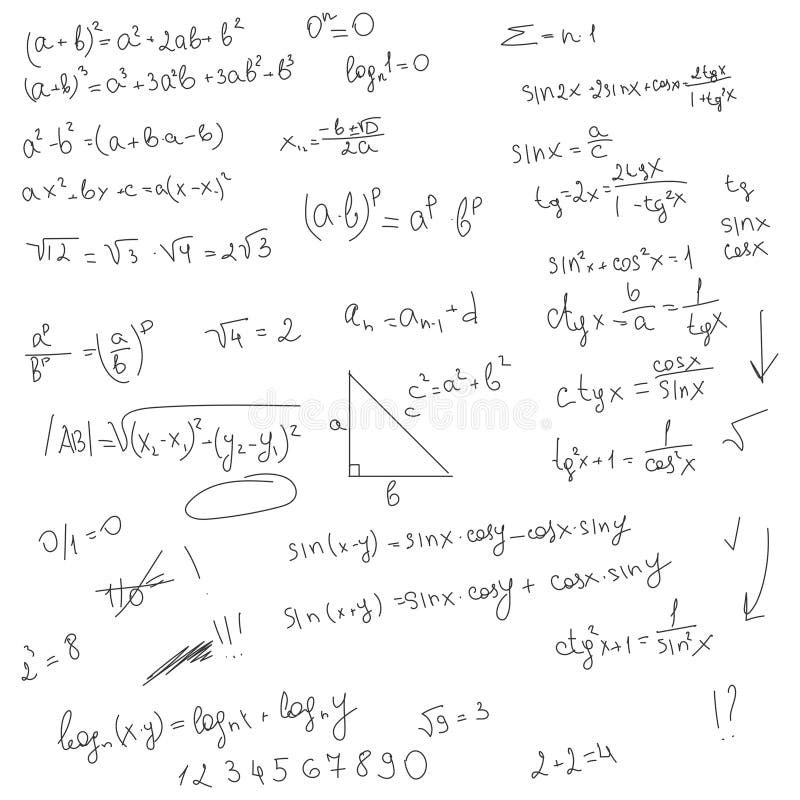 (a+b)²=a²+2ab+b²
0ⁿ=0
Σ=n·1
(a+b)³=a³+3a²b+3ab²+b³
logₙ1=0
sin2x·2sinx+cosx=2tgx/1+tg²x
a²-b²=(a+b·a-b)
x₁₂=-b±√D/2a
sinx=a/c
ax²+bx+c=a(x-x·)²
tg=2x=2tgx/1-tg²x
tg
sinx
cosx
(a·b)ᵖ=aᵖ·bᵖ
√12=√3·√4=2√3
sin²x+cos²x=1
aₙ=aₙ₋₁+d
ctgx=b/a=1/tgx
aᵖ/bᵖ=(a/b)ᵖ
√4=2
c²=a²+b²
a
c
b
ctgx=cosx/sinx
|AB|=√(x₂-x₁)²-(y₂-y₁)²
tg²x+1=1/cos²x
√
0/1=0
sin(x-y)=sinx·cosy-cosx·siny
1/0
!
sin(x+y)=sinx·cosy+cosx·siny
ctg²x+1=1/sin²x
2³=8
!!!
logₙ(x·y)=logₙx+logₙy
√9=3
!?
1234567890
2+2=4
dreamstime